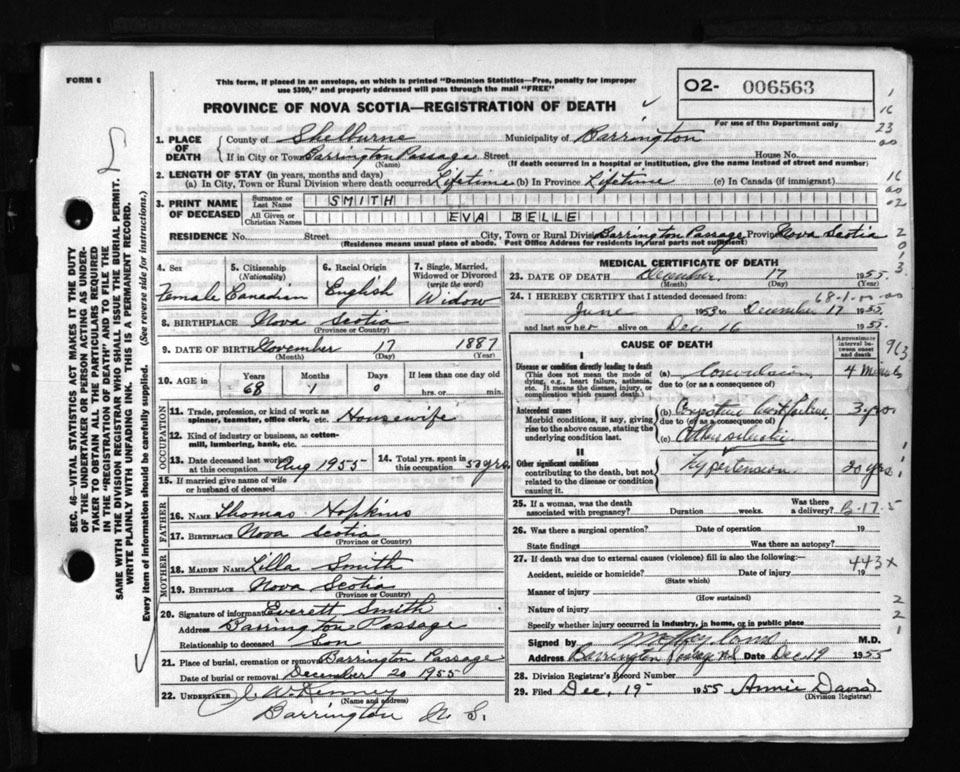 FORM 6
This form, if placed in an envelope, on which is printed "Dominion Statistics—Free, penalty for improper
use $300," and properly addressed will pass through the mail "FREE"
PROVINCE OF NOVA SCOTIA—REGISTRATION OF DEATH
O2- 006563
For use of the Department only
SEC. 46—VITAL STATISTICS ACT MAKES IT THE DUTY
OF THE UNDERTAKER OR PERSON ACTING AS UNDER-
TAKER TO OBTAIN ALL THE PARTICULARS REQUIRED
IN THE "REGISTRATION OF DEATH" AND TO FILE THE
SAME WITH THE DIVISION REGISTRAR WHO SHALL ISSUE THE BURIAL PERMIT.
WRITE PLAINLY WITH UNFADING INK. THIS IS A PERMANENT RECORD.
Every item of information should be carefully supplied. (See reverse side for instructions.)
1. PLACE OF DEATH
County of Shelburne Municipality of Barrington
If in City or Town Barrington Passage Street House No.
(Name) (If death occurred in a hospital or institution, give the name instead of street and number)
2. LENGTH OF STAY (in years, months and days)
(a) In City, Town or Rural Division where death occurred Lifetime (b) In Province Lifetime (c) In Canada (if immigrant)
3. PRINT NAME OF DECEASED
Surname or Last Name SMITH
All Given or Christian Names EVA BELLE
RESIDENCE No. Street City, Town or Rural Division Barrington Passage Province Nova Scotia
(Residence means usual place of abode. Post Office Address for residents in rural parts not sufficient)
4. Sex Female
5. Citizenship (Nationality) Canadian
6. Racial Origin English
7. Single, Married, Widowed or Divorced (write the word) Widow
8. BIRTHPLACE Nova Scotia
(Province or Country)
9. DATE OF BIRTH November 17 1887
(Month) (Day) (Year)
10. AGE in Years Months Days If less than one day old
68 1 0 hrs. or min.
OCCUPATION
11. Trade, profession, or kind of work as spinner, teamster, office clerk, etc. Housewife
12. Kind of industry or business, as cotton-mill, lumbering, bank, etc.
13. Date deceased last worked at this occupation Aug 1955 14. Total yrs. spent in this occupation 50 yrs.
15. If married give name of wife or husband of deceased
FATHER
16. NAME Thomas Hopkins
17. BIRTHPLACE Nova Scotia
(Province or Country)
MOTHER
18. MAIDEN NAME Lilla Smith
19. BIRTHPLACE Nova Scotia
(Province or Country)
20. Signature of informant Everett Smith
Address Barrington Passage
Relationship to deceased Son
21. Place of burial, cremation or removal Barrington Passage
Date of burial or removal December 20 1955
22. UNDERTAKER J. W. Kenney
(Name and address)
Barrington N. S.
MEDICAL CERTIFICATE OF DEATH
23. DATE OF DEATH December 17 1955
(Month) (Day)
24. I HEREBY CERTIFY that I attended deceased from
June 1953 to December 17 1955
and last saw her alive on Dec 16 1955
CAUSE OF DEATH
Approximate interval between onset and death
I
Disease or condition directly leading to death
(This does not mean the mode of dying, e.g., heart failure, asthenia, etc. It means the disease, injury, or complication which caused death.)
(a)
due to (or as a consequence of)
4
Antecedent causes
Morbid conditions, if any, giving rise to the above cause, stating the underlying condition last.
(b) heart failure 3 yrs
due to (or as a consequence of)
(c)
II
Other significant conditions
contributing to the death, but not related to the disease or condition causing it.
Hypertension 20 yrs
25. If a woman, was the death associated with pregnancy? Duration weeks. Was there a delivery? B-17-5
26. Was there a surgical operation? Date of operation 19
State findings Was there an autopsy?
27. If death was due to external causes (violence) fill in also the following:—
443x
Accident, suicide or homicide? Date of injury 19
(State which)
Manner of injury
(How sustained)
Nature of injury
Specify whether injury occurred in industry, in home, or in public place
Signed by M.D.
Address Barrington Passage N.S. Date Dec 19 1955
28. Division Registrar's Record Number
29. Filed Dec. 19 1955 Annie Davis
(Division Registrar)